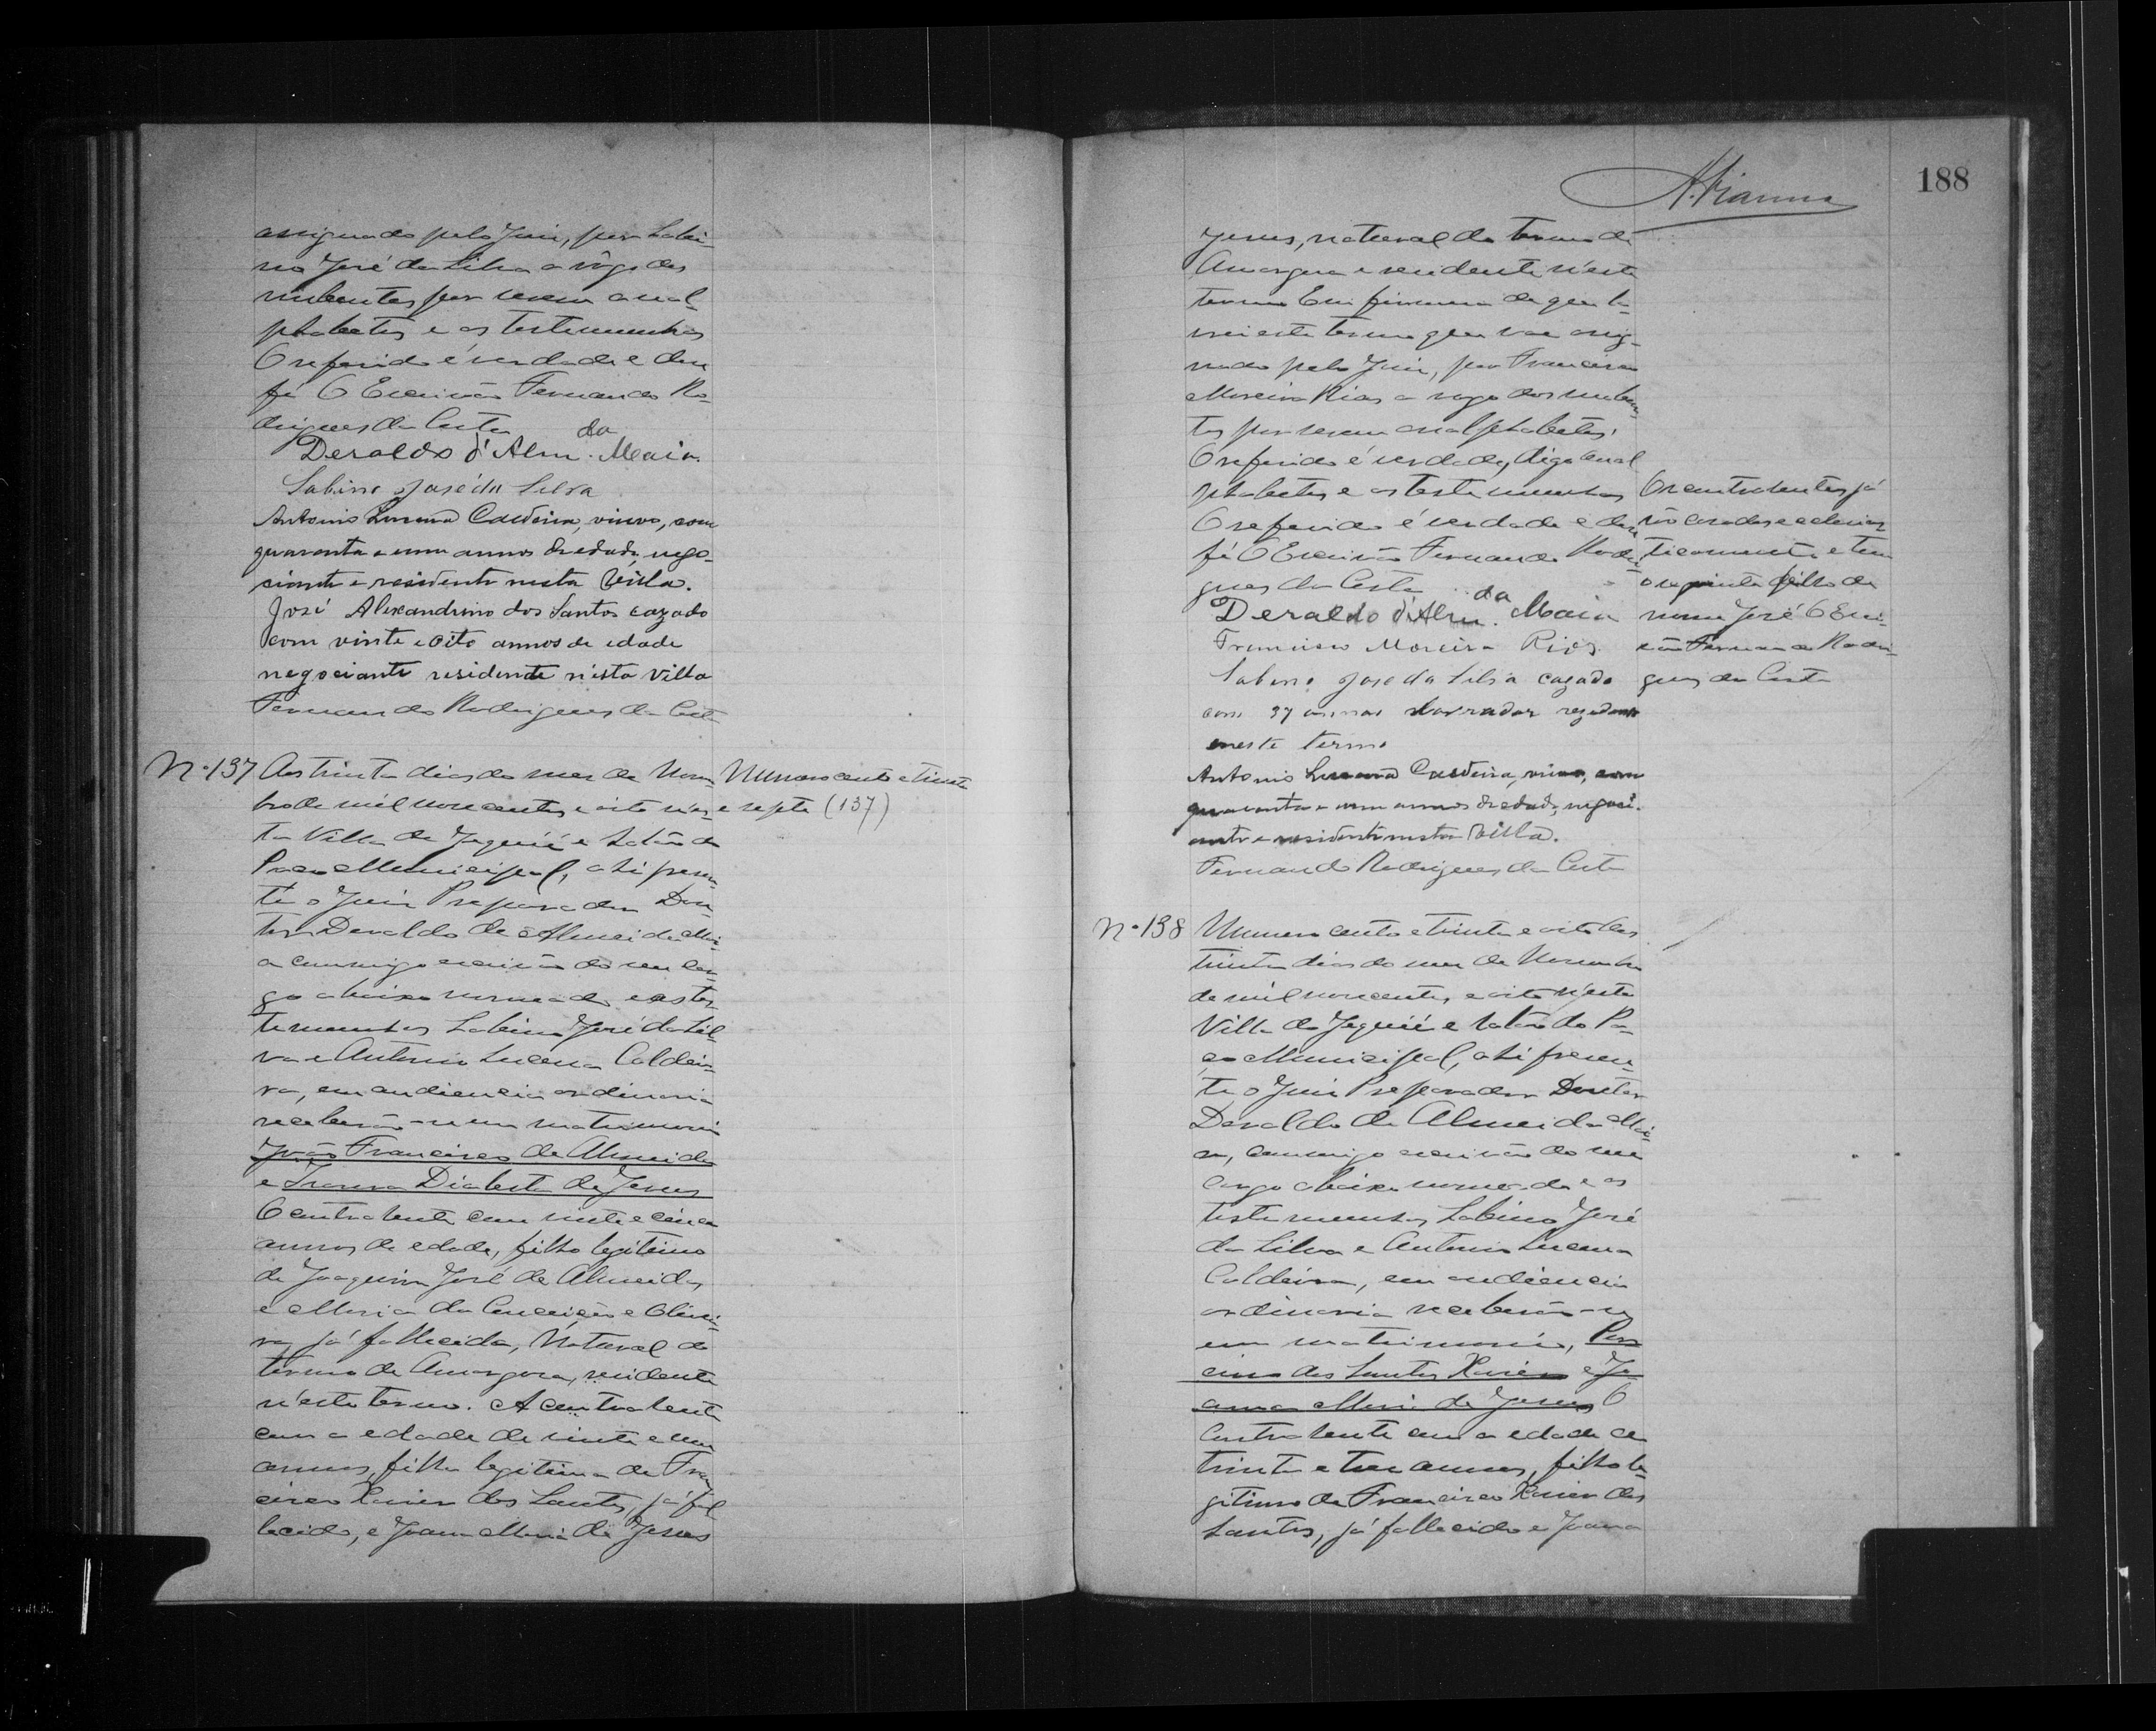 assignado pelo Juiz, por Sabi-
no José da Silva a rôgo dos
nubentes por serem anal-
phabetos e as testemunhas
O referido é verdade e dou
fé O Escrivão Fernando Ro-
drigues da Costa
Deraldo d'Alm.da Maia.
Sabino José da Silva
Antonio Lucena Caldeira, viuvo, com
quarenta e um annos de edade, nego-
ciante e residente nesta Villa.
José Alexandrino dos Santos cazado
com vinte e oito annos de edade
negociante residente n'esta Villa
Fernando Rodrigues da Costa
N.º 137 Aos trinta dias do mes de Novem-
bro de mil novecentos e oito n'es-
ta Villa de Jequié e Salão do
Paço Municipal, ahi presen-
te o Juiz Preparador Dou-
tor Deraldo de Almeida Mai-
a commigo escrivão do seu car-
go abaixo nomeado e as tes-
temunhas Sabino José da Sil-
va e Antonio Lucena Caldei-
ra, em audiencia ordinaria
receberão-se em matrimonio
João Francisco de Almeida
e de Jesus
O contratente com vinte e cinco
annos de edade, filho legitimo
de Joaquim José de Almeida,
e Maria da Conceição e Olivei-
ra, já fallecida, Natural do
termo de Amargosa, residente
n'este termo. A contratente
com a edade de vinte e um
annos, filha legitima de Fran-
cisco Xavier dos Santos, já fal
lecido, e Joana Maria de Jesus
Numero cento e trinta
e sete (137)
A. Vianna
188
Jesus, natural do termo de
Amargosa e residente n'este
termo Em firmeza do que la-
vrei este termo que vae assig-
nado pelo Juiz, por Francisco
Moreira Rios a rogo dos nuben-
tes por serem analphabetos.
O referido é verdade, digo anal
phabetos e as testemunhas
O referido é verdade e dou
fé O Escrivão Fernando Rodri-
gues da Costa
Deraldo d'Alm.da Maia
Francisco Moreira Rios
Sabino José da Silva cazado
com 37 annos lavrador rezidente
neste termo
Antonio Lucena Caldeira, viuvo, com
quarenta e um annos de edade, negoci-
ante e residente nesta Villa.
Fernando Rodrigues da Costa
Os contratentes já
são casados ecclesias
ticamente e tem
o seguinte filho de
nome José O Escri-
vão Fernando Rodri-
gues da Costa
N.º 138 Numero cento e trinta e oito Aos
trinta dias do mes de Novembro
de mil novecentos e oito n'esta
Villa de Jequié e salão do Pa-
ço Municipal, ahi presen-
te o Juiz Preparador Doutor
Deraldo de Almeida Mai-
a, commigo escrivão do seu
cargo abaixo nomeado e as
testemunhas Sabino José
da Silva e Antonio Lucena
Caldeira, em audiencia
ordinaria receberão-se
em matrimonio,
dos Santos Xavier e Jo-
anna Maria de Jesus O
Contratente com a edade de
trinta e tres annos, filho le-
gitimo de Francisco Xavier dos
Santos, já fallecido e Joana